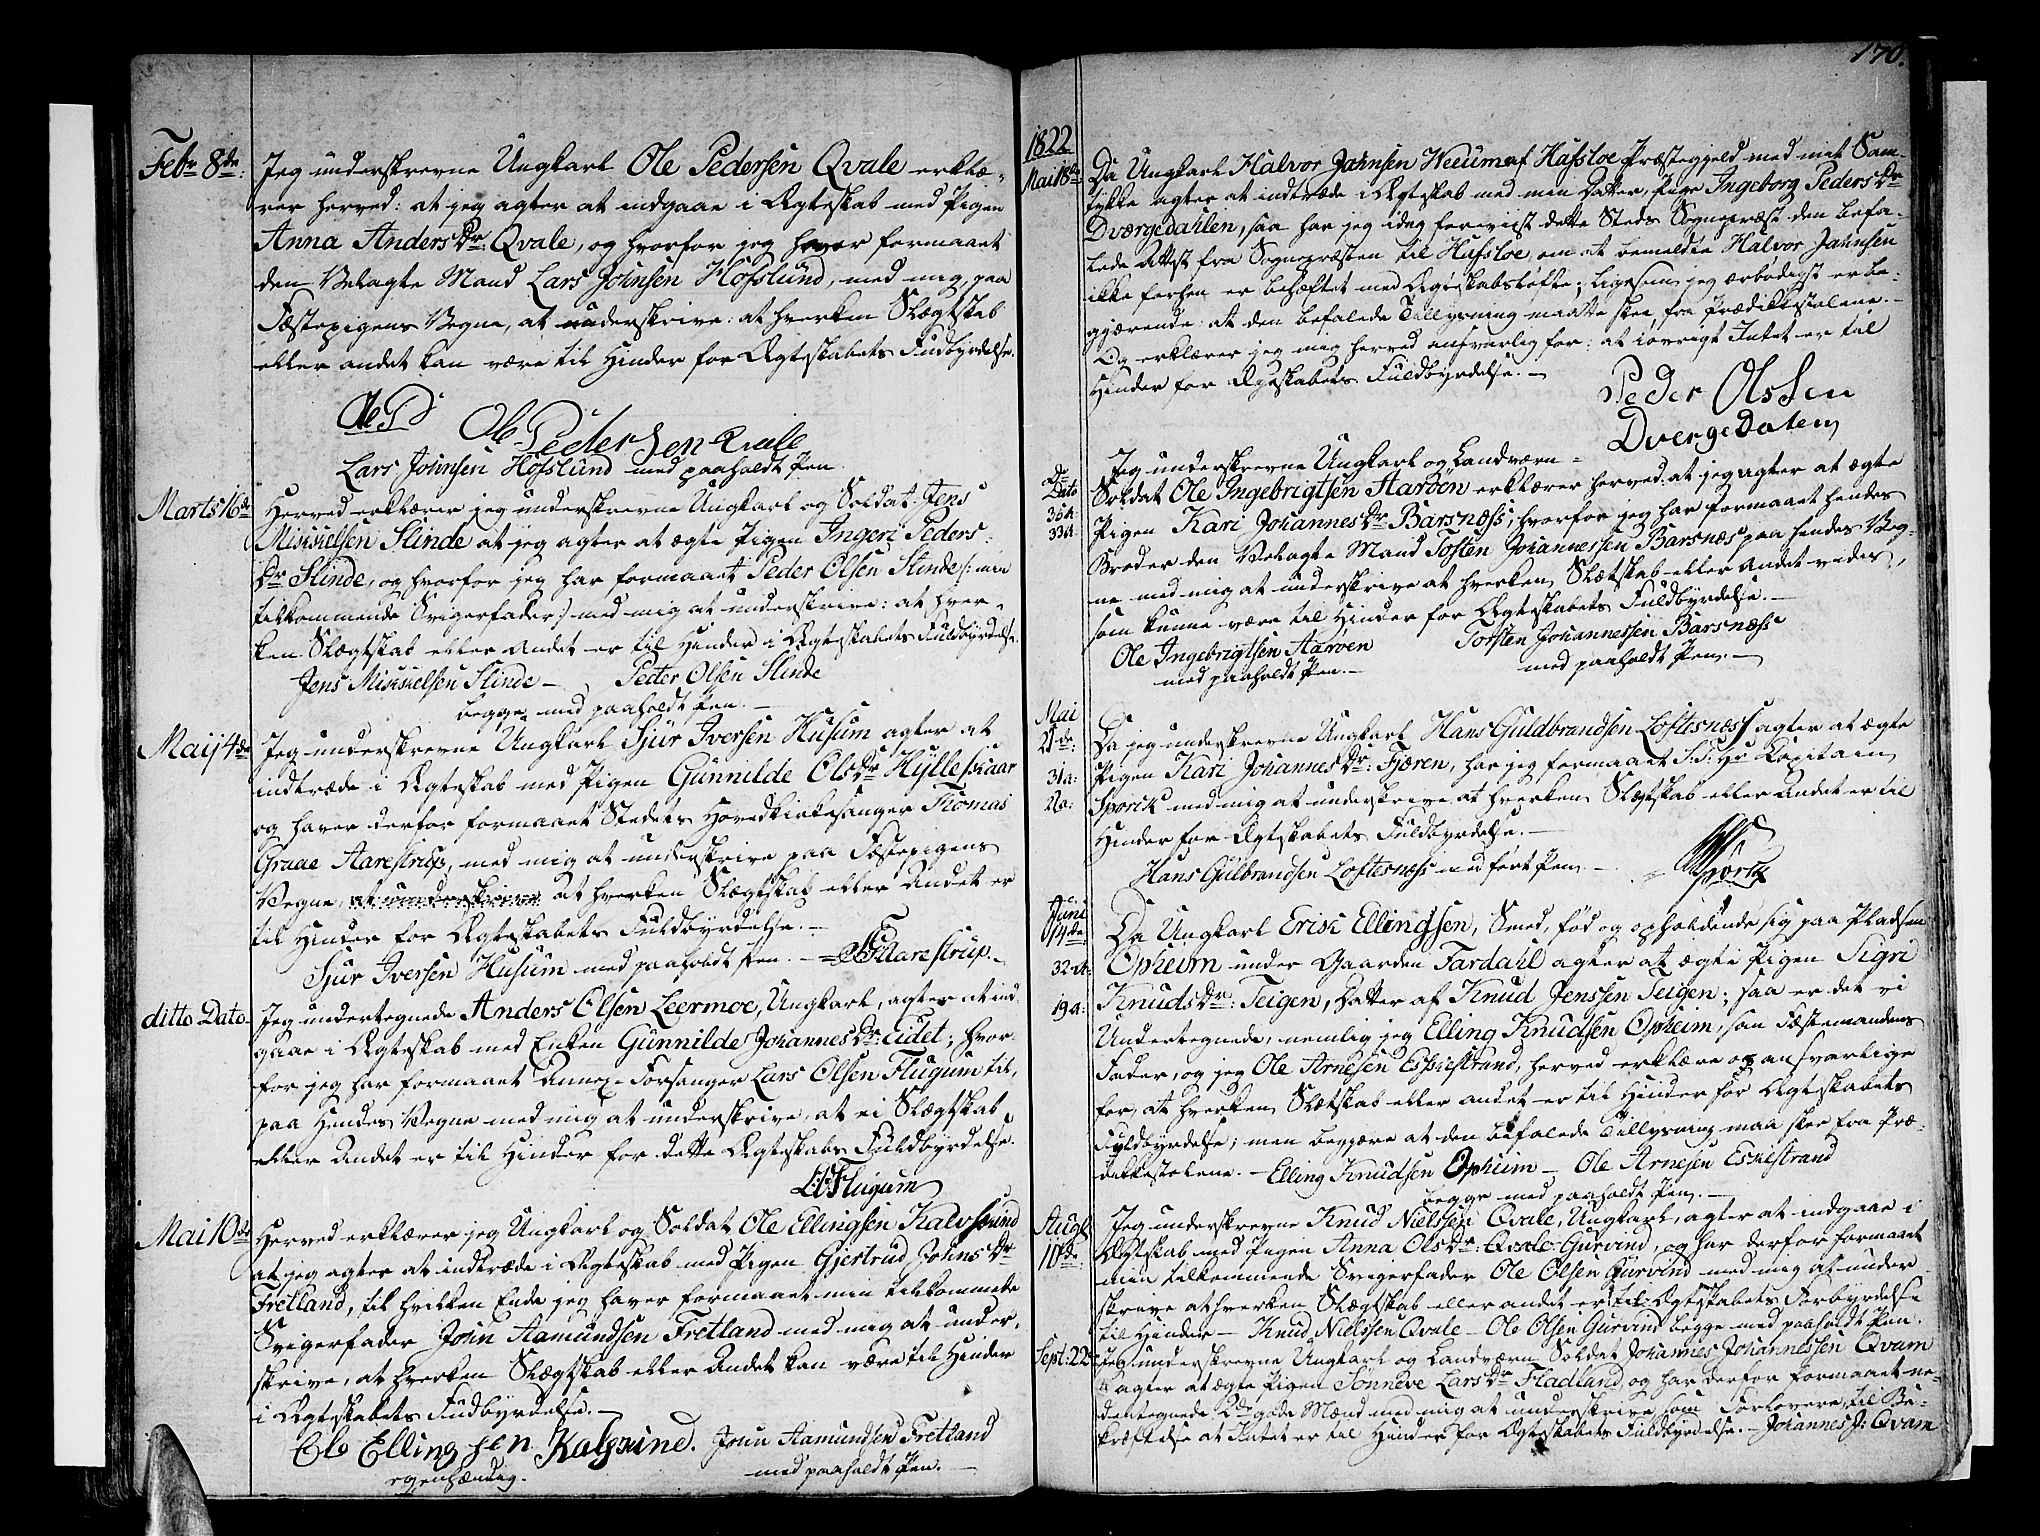 Febr 8de: Jeg underskrevne Ungkarl Ole Pedersen Qvale erklæ-
rer herved: at jeg agter at indgaae i Ægteskab med Pigen
Anna Anders Dr Qvale, og hvorfor jeg haver formaaet
den Velagte Mand Lars Johnsen Hofslund, med mig, paa
Fæstepigens Vegne, at underskrive: at hverken Slægtskab
eller andet kan være til Hinder for Ægteskabets Fudbyrdelse.
Ole P
Ole Pedersen Qvale
Lars Johnsen Hofslund med paaholdt Pen.
Marts 16de Herved erklærer jeg underskrevne Ungkarl og Soldat Jens
Mikkelsen Slinde at jeg agter at ægte Pigen Ingeri Peders
Dr Slinde, og hvorfor jeg har formaaet Peder Olsen Slinde /: min
tilkommende Svigerfader :/ med mig at underskrive: at hver-
ken Slægtskab eller Andet er til Hinder i Ægteskabets Fuldbyrdelse.
Jens Mikkelsen Slinde – Peder Olsen Slinde
begge med paaholdt Pen. –
Maij 4de Jeg underskrevne Ungkarl Sjur Iversen Husum agter at
indtræde i Ægteskab med Pigen Gunnilde Ols Dr Hylleskaar
og haver derfor formaaet Stedets Hovedkirkesanger Thomas
Graae Aarestrup, med mig at underskrive paa Fæstepigens
Vegne, at underskrive at hverken Slægtskab eller Andet er
til Hinder for Ægteskabets Fuldbyrdelse. –
Sjur Iversen Husum med paaholdt Pen. – Aarestrup. –
ditto Dato – Jeg undertegnede Anders Olsen Leermoe, Ungkarl, agter at ind
gaae i Ægteskab med Enken Gunnilde Johannes Dr: Eidet; hvor-
for jeg har formaaet Annex-Forsanger Lars Olsen Flugum til,
paa Hendes Vegne med mig at underskrive, at ei Slægtskab
eller Andet er til Hinder for dette Ægteskabs Fuldbyrdelse.
L: O: Flugum
Mai 10de Herved erklærer jeg Ungkarl og Soldat Ole Ellingsen Kalvskind
at jeg agter at indtræde i Ægteskab med Pigen Gjertrud Johns Dr
Fretland, til hvilken Ende jeg haver formaaet min tilkommende
Svigerfader John Aamundsen Fretland med mig at under-
skrive, at hverken Slægtskab eller Andet kan være til Hinder
i Ægteskabets Fudbyrdelse. –
Ole Ellingsen Kalskind. John Aamundsen Fretland
egenhændig. med paaholdt Pen. –
170.
1822
Mai 18de Da Ungkarl Halvor Jahnsen Weeum af Hafsloe Præstegjeld med mit Sam-
tykke agter at indtræde i Ægteskab med min Datter, Pige Ingeborg Peders Dr
Dværgedahlen, saa har jeg idag foreviist dette Steds Sognepræst den befa-
lede Attest fra Sognepræsten til Hafsloe, om at bemeldte Halvor Jahnsen
ikke forhen er behæftet med Ægteskabsløfte; ligesom jeg ærbødigst er be-
gjærende: at den befalede Tillysning maatte skee fra Prædikestolene. –
Og erklærer jeg mig herved ansvarlig for: at iøvrigt Intet er til
Hinder for Ægeskabets Fuldbyrdelse. –
Peder Olssen
Dvergedalen
do Dato Jeg underskrevne Ungkarl og Landværn-
Soldat Ole Ingebrigtsen Aarøen erklærer herved: at jeg agter at ægte
36 A
33 A. Pigen Kari Johannes Dr Barsness, hvorfor jeg har formaaet hendes
Broder den Velagte Mand Tosten Johannessen Barsnæs paa hendes Veg-
ne med mig at underskrive at hverken Slætskab eller Andet vides,
som kunne være til Hinder for Ægteskabets Fuldbyrdelse. –
Ole Ingebrigtsen Aarøen Torsten Johannessen Barsnæss
med paaholdt Pen. – med paaholdt Pen. –
Mai
Da jeg underskrevne Ungkarl Hans Guldbrandsen Loftesnæss agter at ægte
31 a: Pigen Kari Johannes Dr: Fjæren, har jeg formaaet S. T: Hr Kapitain
Sporck med mig at underskrive at hverken Slægtskab eller Andet er til
Hinder for Ægteskabets Fuldbyrdelse. –
Hans Gulbrandsen Loftesnæss med ført Pen – Sporck
Juni
Da Ungkarl Erik Ellingsen, Smed, fød og opholdende sig paa Pladsen
32 A: Opheim under Gaarden Fardahl agter at ægte Pigen Sigri
19 a: Knuds Dr: Teigen, Datter af Knud Jenssen Teigen; saa er det vi
Undertegnede, nemlig jeg Elling Knudsen Opheim, som Fæstemandens
Fader, og jeg Ole Arnesen Eskestrand, herved erklære os ansvarlige
for, at hverken Slætskab eller andet er til Hinder for Ægteskabets
Fuldbyrdelse; men begjære at den befalede Tillysning maa skee fra Præ-
dikkestolene. – Elling Knudsen Opheim – Ole Arnesen Eskestrand
begge med paaholdt Pen. –
Augt
10de Jeg underskrevne Knud Nielssen Qvale, Ungkarl, agter at indgaae i
Ægteskab med Pigen Anna Ols Dr: Qvale Gurvind, og har derfor formaaet
min tilkommende Svigerfader Ole Olsen Gurvind med mig at under
skrive at hverken Slægtskab eller andet er til Ægteskabets Forbyrdelse
til Hinder – Knud Nielssen Qvale – Ole Olsen Gurvind begge med paaholdt Pen.
Sept: 22 Jeg underskrevne Ungkarl og Landværn Soldat Johannes Johannessen Qvam
agter at ægte Pigen Sønneve Lars Dr Fladland, og har derfor formaaet ne-
dentegnede 2de gode Mænd med mig at underskrive som Forlovere, til Be-
kræftelse at Intet er til Hinder for Ægteskabets Fuldbyrdelse. – Johannes J: Qvam